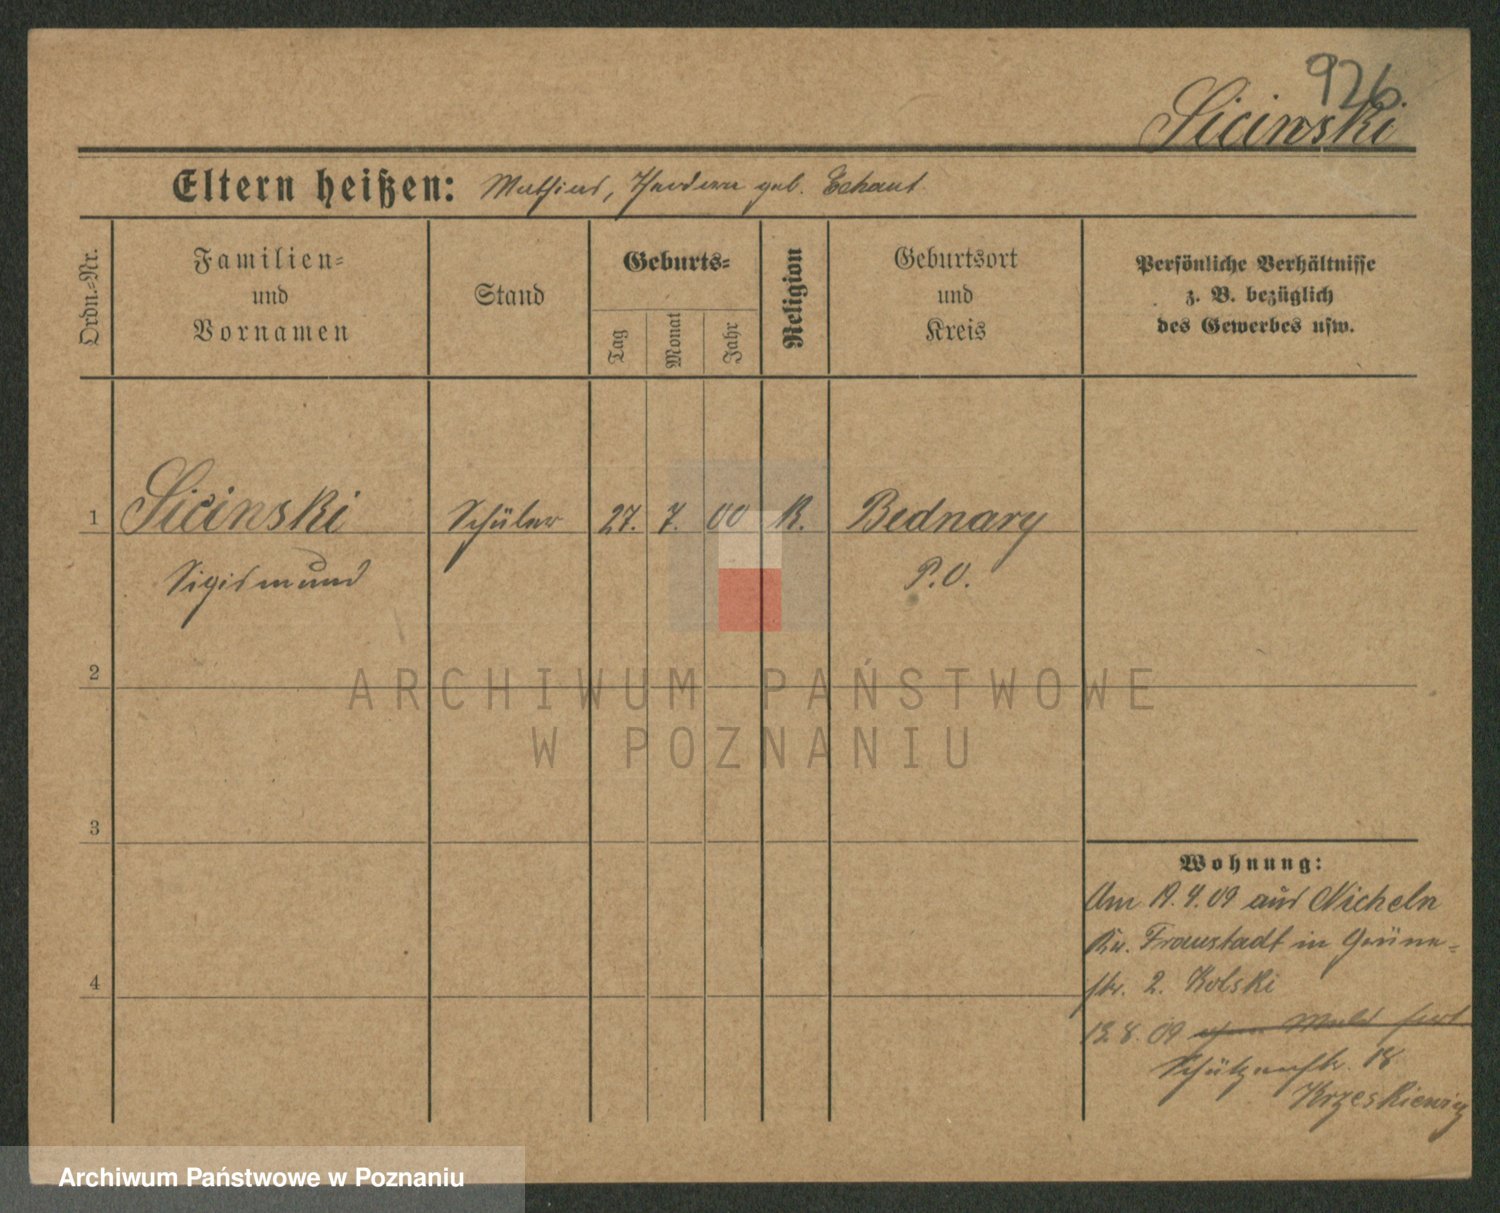 926
Sicinski
Eltern heißen: Mathias, geb. Eckaut
Ordn.-Nr.
Familien-
und
Vornamen
Stand
Geburts-
Tag
Monat
Jahr
Religion
Geburtsort
und
Kreis
Persönliche Verhältnisse
z. B. bezüglich
des Gewerbes usw.
1 Sicinski Schüler 27. 7. 00 K. Bednary
Sigismund P.O.
2
ARCHIWUM PAŃSTWOWE
W POZNANIU
3
Wohnung:
Am 19.4.09 aus Nicheln
Kr. Fraustadt in Grüne-
4
str. 2. Kolski
13.8.09 ohne Meld fort
Schützenstr. 18
Krzeskiewicz
Archiwum Państwowe w Poznaniu